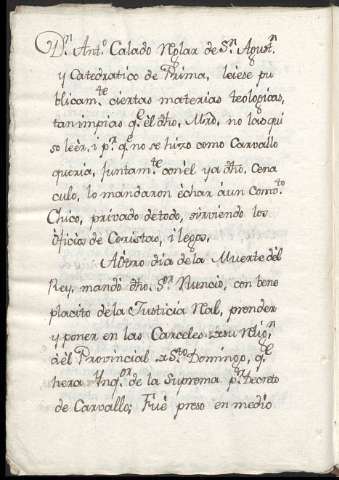 Dn. Antº Calado Rglar de Sn. Agustn.
y Catedratico de Prima, leiese pu
blicam.te ciertas materias teologicas,
tan impias q.e el dho, Mro, no las qui
so leèr, i p.r q.e no se hizo como Carvallo
queria, juntam.te con el ya dho, Cena
culo, lo mandaron èchar à un Conv.to
Chico, privado de todo, sirviendo los
òficios de Coristas, i legos,
Aòtro dia de la Muerte dèl
Rey, mandó dho. Sr. Nuncio, con bene
placito de la Justicia Ral, prender
y poner en las Carceles su Relign.
àèl Provincial Sto Domingo, q.e
hera Ynqor. de la Suprema pr. Decreto
de Carvallo; Fuè preso en medio